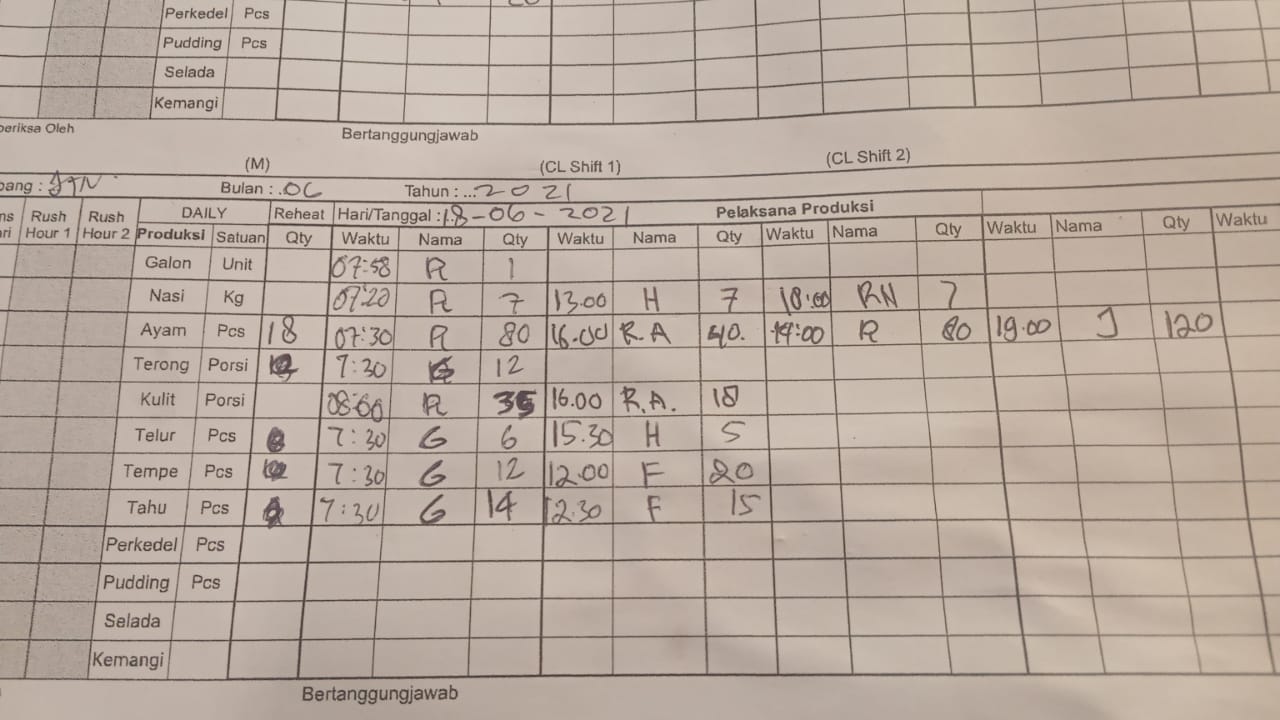 Perkedel Pcs
Pudding Pcs
Selada
Kemangi
periksa Oleh Bertanggungjawab
(M) (CL Shift 1) (CL Shift 2)
bang : JTN Bulan : 06 Tahun : ... 2021
Rush Hour 1 Rush Hour 2 DAILY Reheat Hari/Tanggal : 18-06-2021 Pelaksana Produksi
Produksi Satuan Qty Waktu Nama Qty Waktu Nama Qty Waktu Nama Qty Waktu Nama Qty Waktu
Galon Unit 07:58 R 1
Nasi Kg 07:20 R 7 13.00 H 7 18:00 RN 7
Ayam Pcs 18 07:30 R 80 16.00 R.A 40. 14:00 R 80 19.00 J 120
Terong Porsi 7:30 G 12
Kulit Porsi 08:00 R 35 16.00 R.A. 18
Telur Pcs 7:30 G 6 15.30 H 5
Tempe Pcs 7:30 G 12 12.00 F 20
Tahu Pcs 7:30 G 14 12.30 F 15
Perkedel Pcs
Pudding Pcs
Selada
Kemangi
Bertanggungjawab